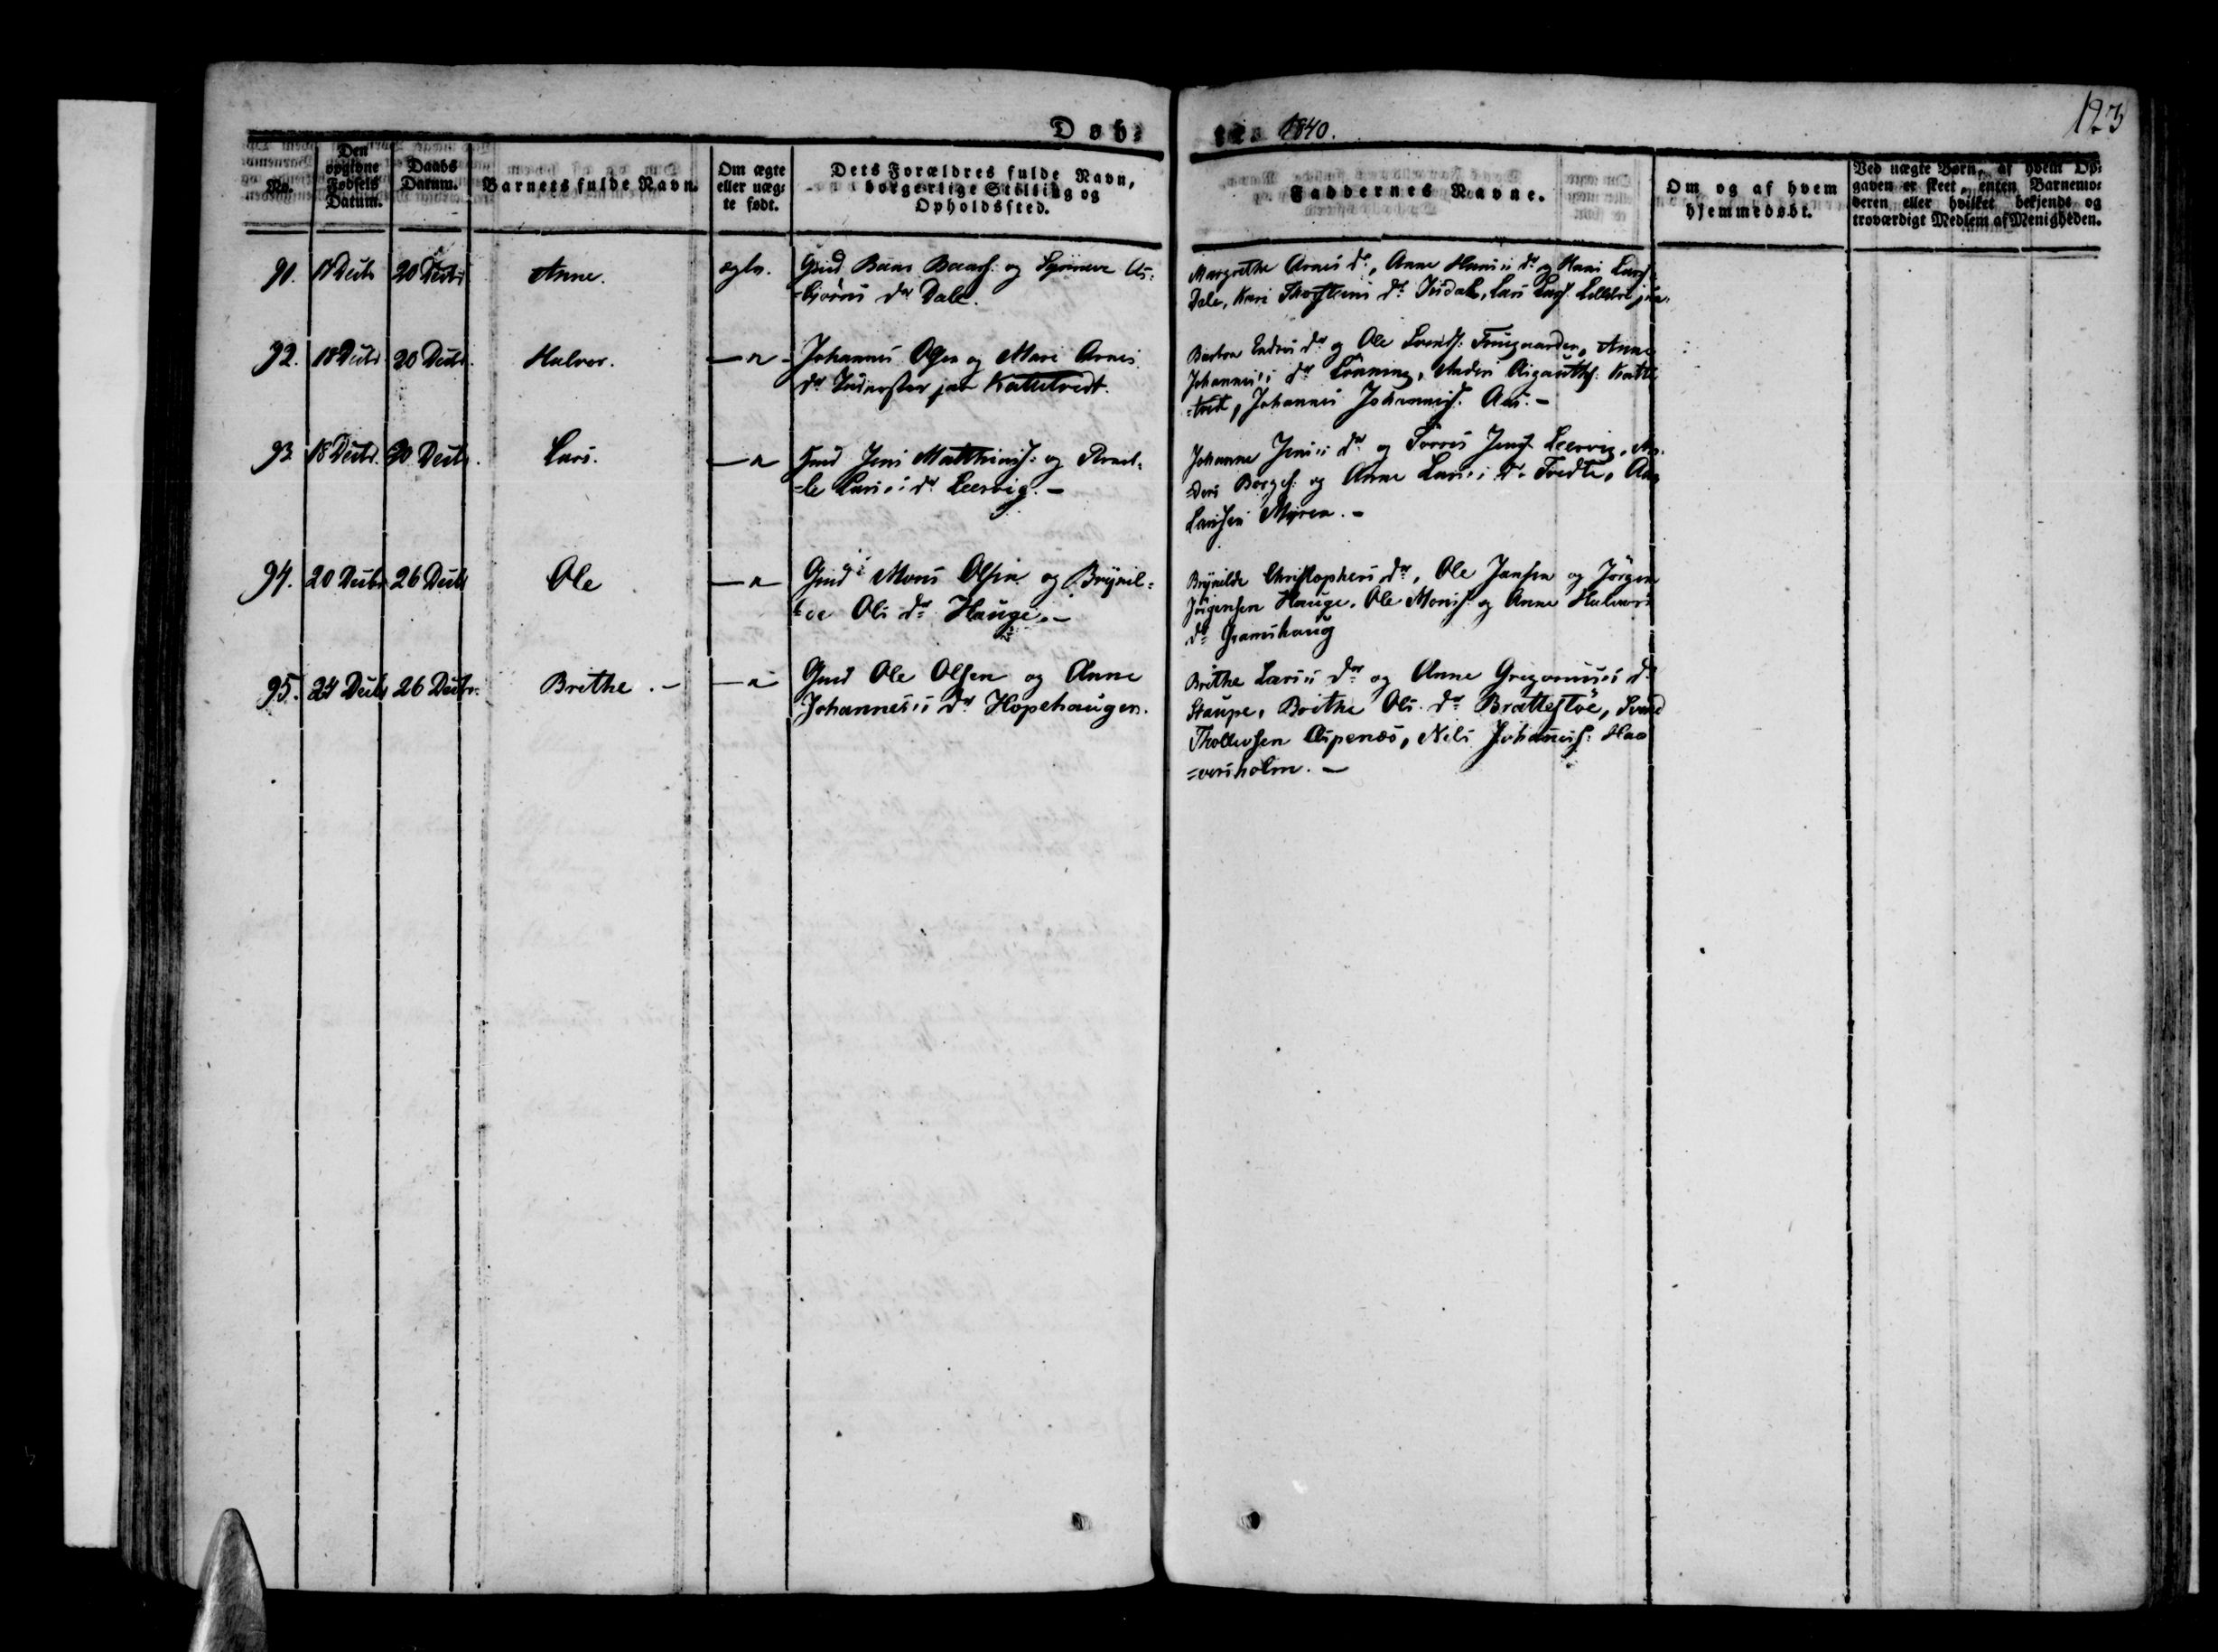 Døb-
te 1840.
123
No.
Den opgivne Fødsels Datum.
Daabs Datum.
Barnets fulde Navn.
Om ægte eller uæg-
te født.
Dets Forældres fulde Navn,
borgerlige Stilling og
Opholdssted.
Faddernes Navne.
Om og af hvem
hjemmedøbt.
Ved uægte Børn, af hvem Op-
gaven er skeet, enten Barnemo-
deren eller hvilket bekjendt og
troværdigt Medlem af Menigheden.
91. 17 Decbr 20 Decbr Anne. ægte. Gmd Baar Baars: og Synneve As-
=biörns dr Dale.
Margrethe Arnes dr, Anne Hans's dr og Hans Lars:
Dale, Kari Thorsteins dr Isdahl, Lars Lars:
92. 18 Decbr. 20 Decbr. Halvor. — " — Johannes Olsen og Mari Arnes
dr Inderster paa Kattetvedt.
Endres dr og Ole Svends: Anne
Johannes's dr Lönning, Anders Katte
=tvet, Johannes Johanness: Aas. —
93 18 Decbr. 20 Decbr. Lars. — " Gmd Jens Matthias: og
Lars's dr Leervig. —
Johanne Jens's dr og Jens: Leervig, An-
=ders Börges: og Anne Lars's dr Tvedte,
Larsen Myren. —
94. 20 Decbr 26 Decbr Ole — " Gmd Mons Olsen og Brynil-
=de Ols dr Hauge. —
Brynilde Christophers dr, Ole Jansen og Jörgen
Jörgensen Hauge, Ole Mons: og Anne Halvors
dr Gramshaug
95. 24 Decbr 26 Decbr. Brithe. — — " Gmd Ole Olsen og Anne
Johannes's dr Hopehaugen.
Brithe Lars's dr og Anne Gregorius's dr
Staupe, Brithe Ols dr Brattestöe, Svend
Thollevsen Aspenæs, Nils Johanness: Hav
=versholm. —